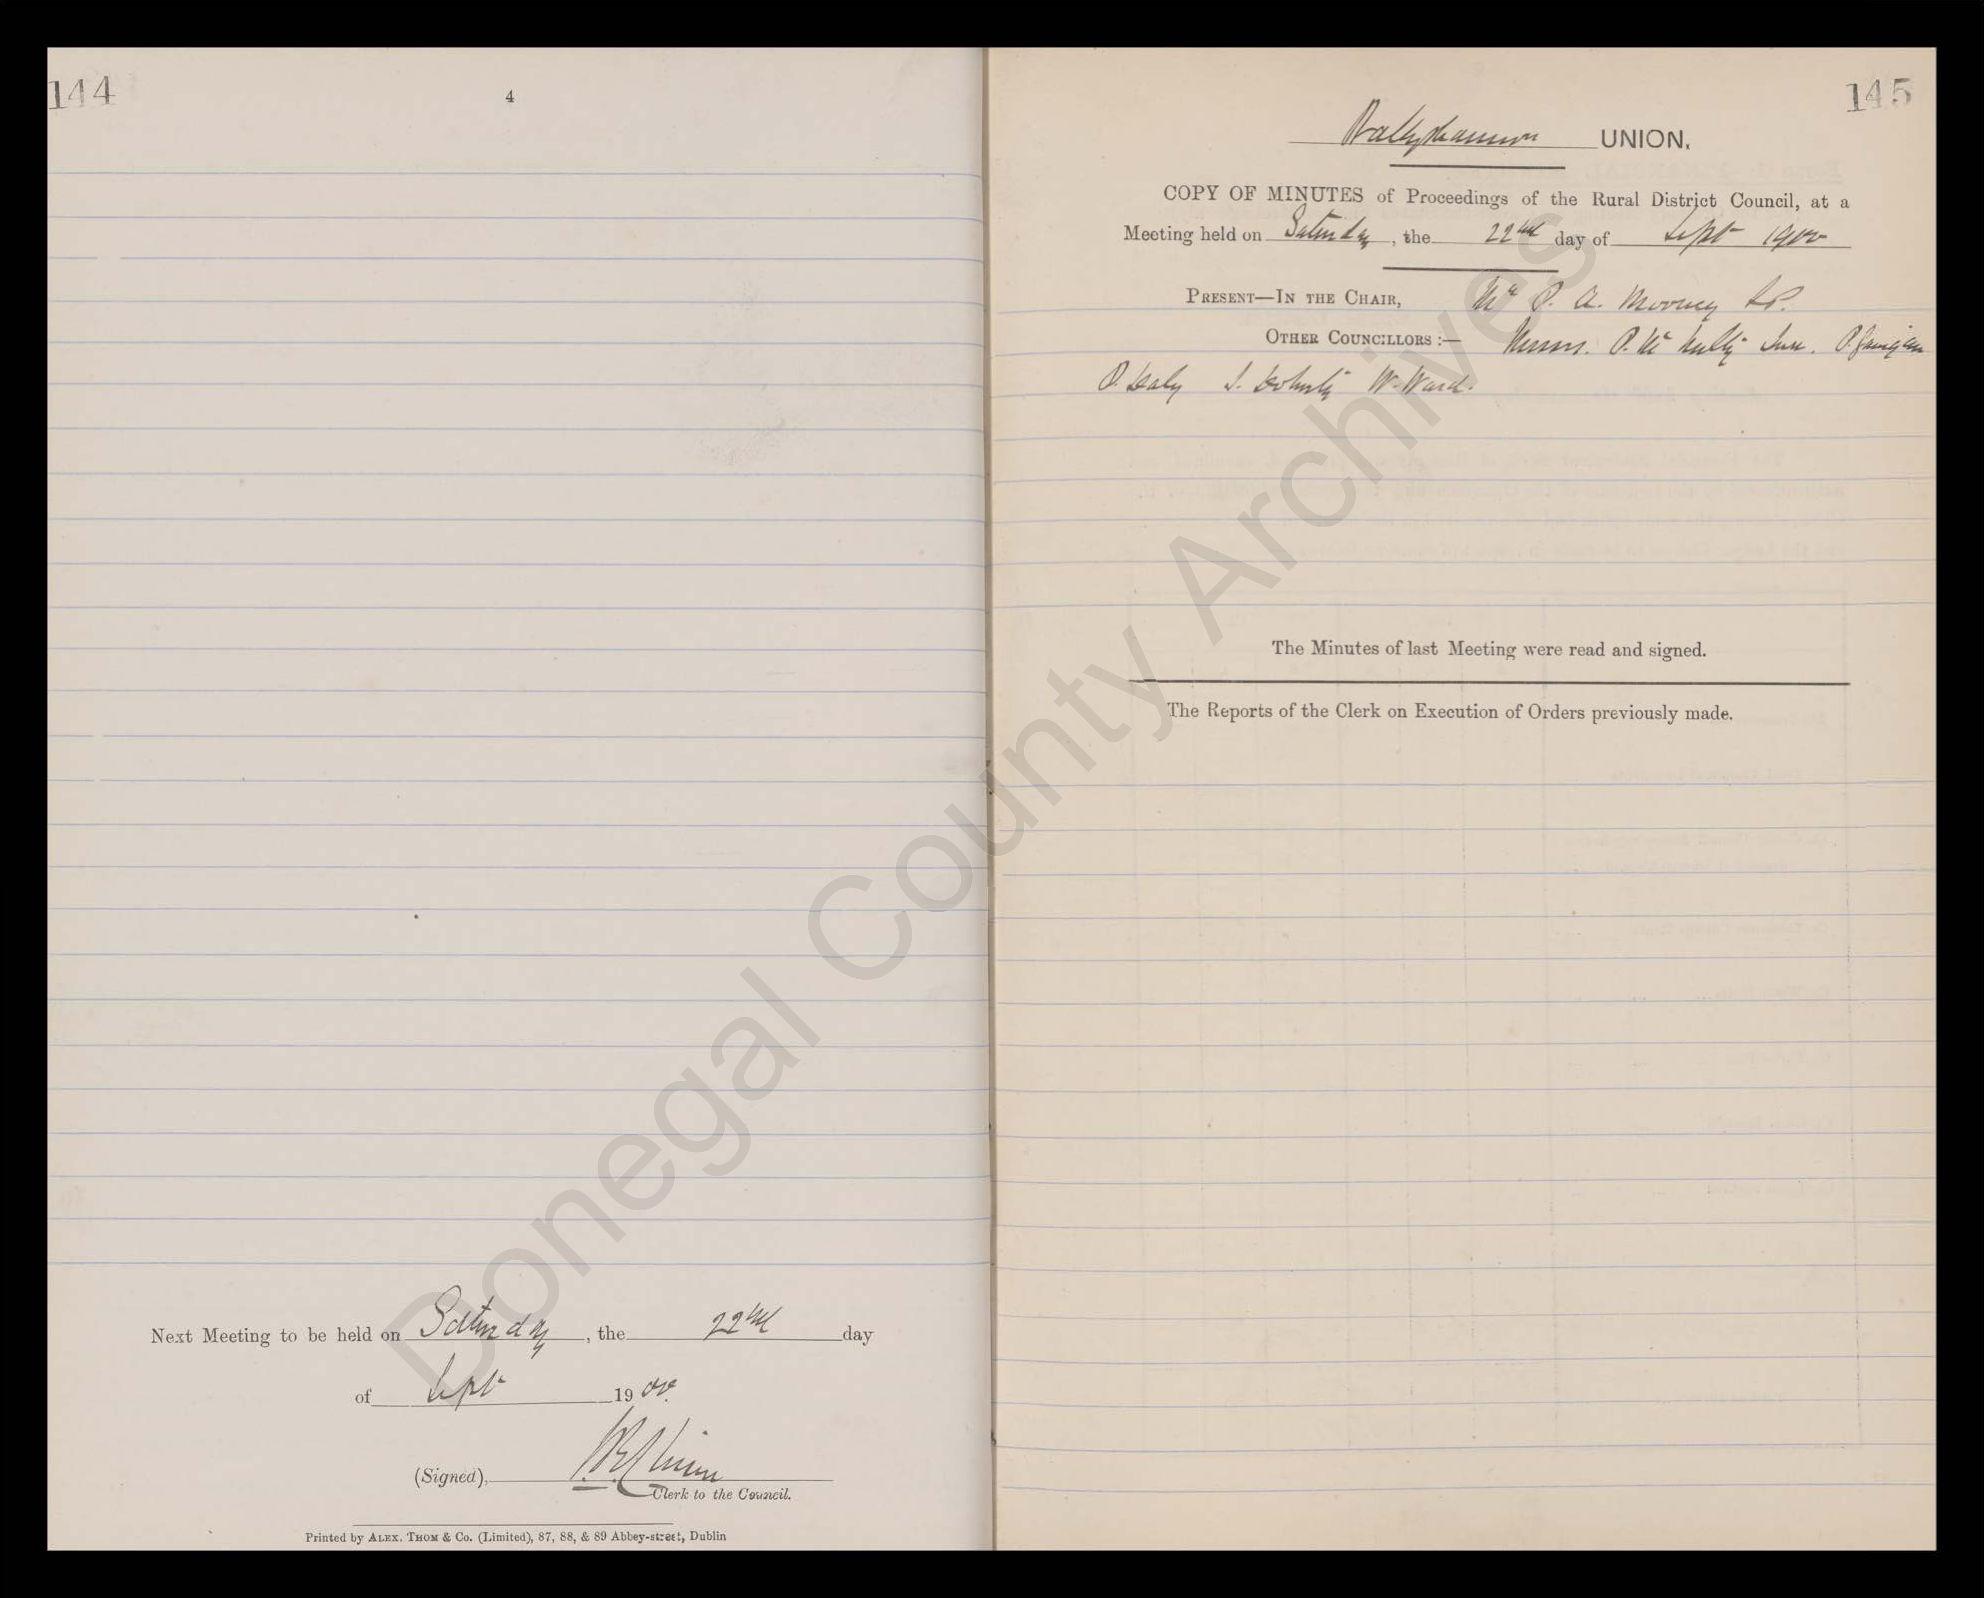 144
4
Next Meeting to be held on Saturday, the 22nd day
of Sept 1900.
(Signed),
Clerk to the Council.
Printed by ALEX. THOM & Co. (Limited), 87, 88, & 89 Abbey-street, Dublin
145
Ballyshannon UNION.
COPY OF MINUTES of Proceedings of the Rural District Council, at a
Meeting held on Saturday, the 22nd day of Sept 1900
PRESENT—IN THE CHAIR, Mr P. A. Mooney J.P.
OTHER COUNCILLORS :— Messrs. P. McNulty Junr. P. Gavigan
P. Daly J. Doherty W. Ward.
The Minutes of last Meeting were read and signed.
The Reports of the Clerk on Execution of Orders previously made.
Donegal County Archives